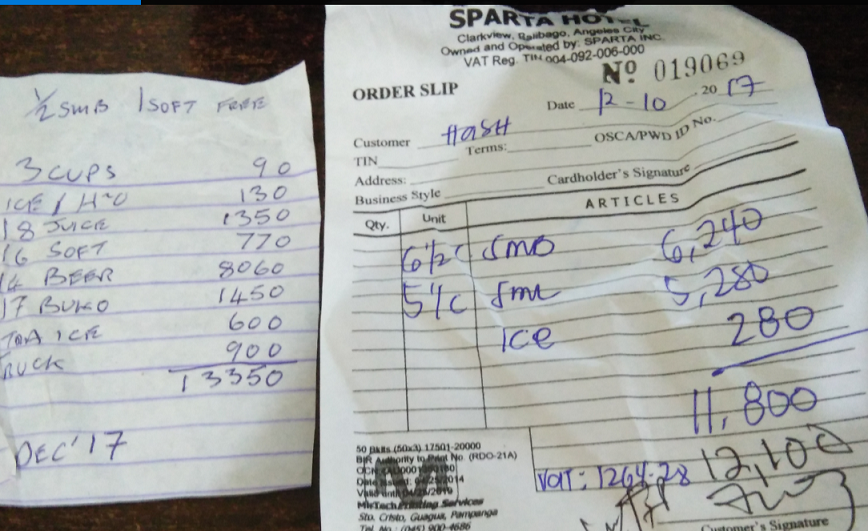 1/2 SMB 1 SOFT FREE
3 CUPS 90
ICE / H2O 130
18 JUICE 1350
16 SOFT 770
14 BEER 8060
17 BUKO 1450
ICE 600
900
13350
DEC'17
SPARTA HOTEL
Clarkview, Balibago, Angeles City
Owned and Operated by: SPARTA INC.
VAT Reg. TIN 004-092-006-000
Nº 019069
ORDER SLIP
Date 12-10, 2017
Customer HASH
Terms: OSCA/PWD ID No.
TIN
Address: Cardholder's Signature
Business Style
Qty. Unit ARTICLES
6 1/2 c SMB 6,240
SML 5,280
ICE 280
11,800
12,100
VAT: 1264.28
50 pkts (50x3) 17501-20000
BIR Authority to Print No. (RDO-21A)
Date Issued: 04/25/2014
Valid until 04/25/2019
Printing Services
Sto. Cristo, Guagua, Pampanga
Tel. No.: (045) 900-4686
Customer's Signature